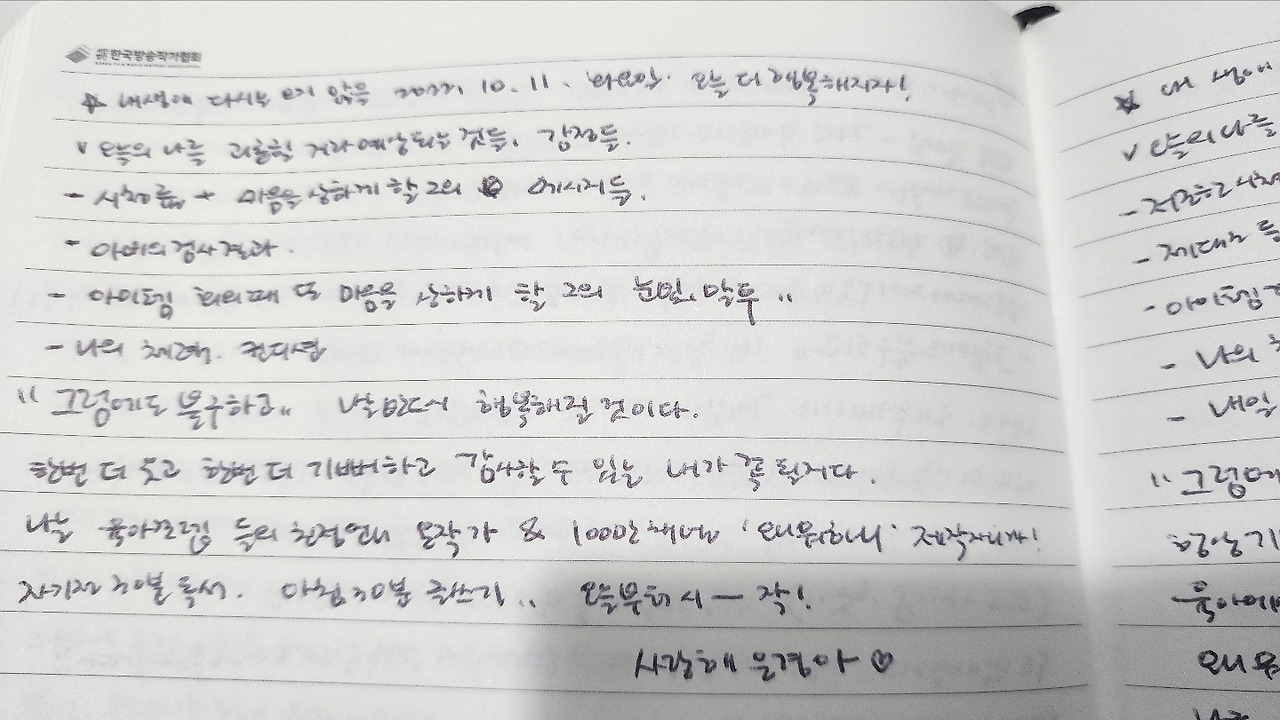 한국방송작가협회
☆ 내 생에 다시는 오지 않을 2022. 10. 11. 화요일. 오늘 더 행복해지자!
v 오늘의 나를 괴롭힐 거라 예상되는 것들, 감정들.
- 시청률 + 마음을 상하게 할 그의 메시지들.
- 아버의 검사결과.
- 아이템 회의때 또 마음을 상하게 할 그의 눈빛, 말투..
- 나의 체력. 컨디션
"그럼에도 불구하고" 난 반드시 행복해질 것이다.
한번 더 웃고 한번 더 기뻐하고 감사할 수 있는 내가 꼭 될거다.
나는 육아 들의 친정언니 오작가 & 100만 채널 '왜 뭐하니' 제작자니까!
자기전 30분 독서. 아침 30분 글쓰기.. 오늘부터 시ㅡ작!
사랑해 은경아 ♡
☆ 내 생에
v 오늘의 나를
- 저조한 시청
- 제대로
- 아이템
- 나의
- 내일
"그럼에
육아
왜 뭐
나는